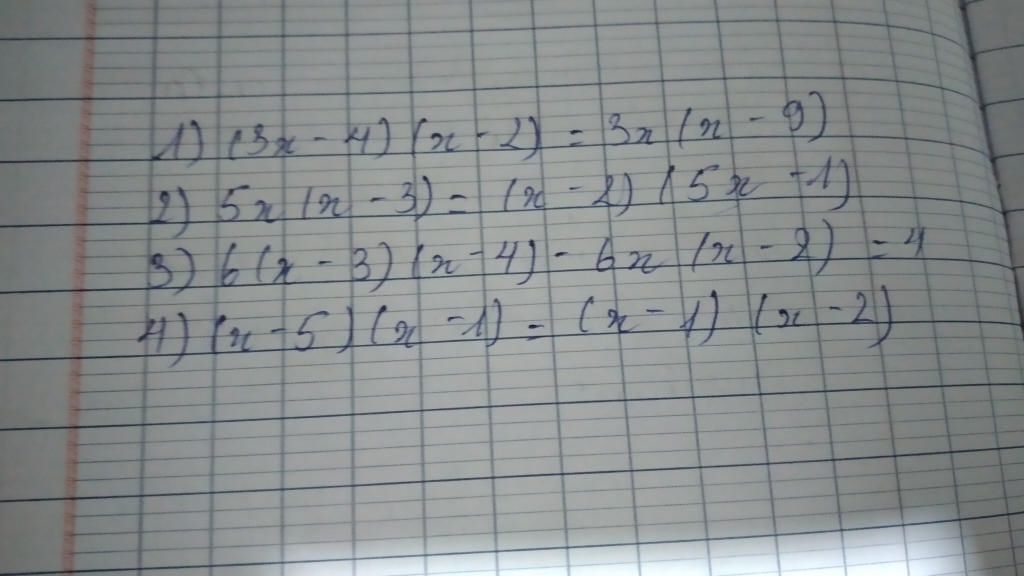 1) (3x - 4) (x - 2) = 3x (x - 9)
2) 5x (x - 3) = (x - 2) (5x - 1)
3) 6(x - 3) (x - 4) - 6x (x - 2) = 4
4) (x - 5) (x - 1) = (x - 1) (x - 2)